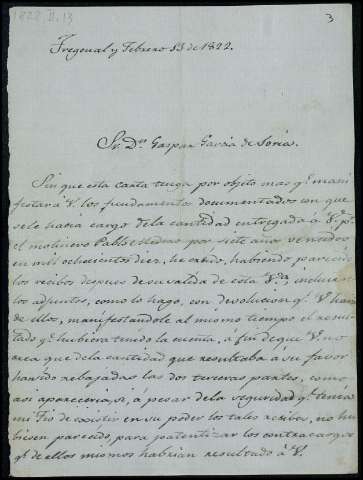 1822, II, 13
3
Fregenal y Febrero 13 de 1822.
Sr. Dn. Gaspar Garcia de Soria.
Sin que esta carta tenga por objeto mas qe. mani
festar á V. los fundamentos documentados con que
se le hacia cargo de la cantidad entregada á V. pr.
el molinero Pablo Medina por siete años vencidos
en mil ochocientos diez, he creido, habiendo parecido
los recibos despues de su salida de esta Va. incluir
los adjuntos, como lo hago, con devolucion qe. V. hara
de ellos, manifestandole al mismo tiempo el resul
tado qe. hubiera tenido la cuenta, á fin de que V. no
crea que de la cantidad que resultaba a su favor
han sido rebajadas las dos terceras partes, como
asi apareceria, si, á pesar de la seguridad qe. tenia
mi Tio de existir en su poder los tales recibos, no hu
biesen parecido, para patentizar los contracargos
qe. de ellos mismos habrian resultado á V.